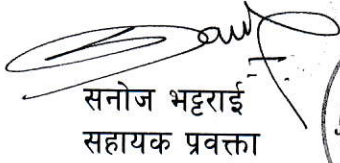 सनोज भट्टराई
सहायक प्रवक्ता